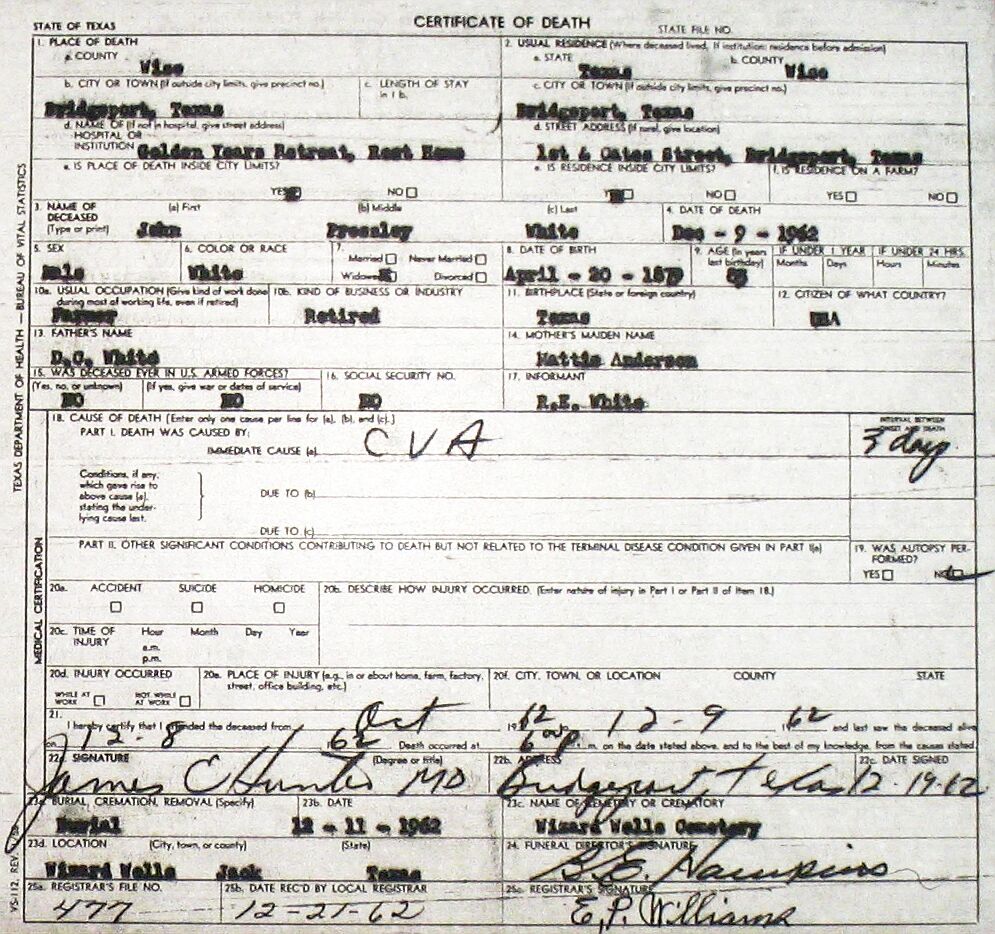 CERTIFICATE OF DEATH
STATE OF TEXAS
STATE FILE NO.
1. PLACE OF DEATH
a. COUNTY
Wise
2. USUAL RESIDENCE (Where deceased lived. If institution: residence before admission)
a. STATE b. COUNTY
Texas Wise
b. CITY OR TOWN (If outside city limits, give precinct no.)
c. LENGTH OF STAY in 1 b.
Bridgeport, Texas
c. CITY OR TOWN (If outside city limits, give precinct no.)
Bridgeport, Texas
d. NAME OF (If not in hospital, give street address)
HOSPITAL OR
INSTITUTION Golden Years Retreat, Rest Home
d. STREET ADDRESS (If rural, give location)
1st & Cates Street, Bridgeport, Texas
e. IS PLACE OF DEATH INSIDE CITY LIMITS?
YES NO
e. IS RESIDENCE INSIDE CITY LIMITS?
YES NO
f. IS RESIDENCE ON A FARM?
YES NO
3. NAME OF DECEASED (Type or print)
(a) First (b) Middle (c) Last
John Pressley White
4. DATE OF DEATH
Dec - 9 - 1962
5. SEX
Male
6. COLOR OR RACE
White
7.
Married Never Married
Widowed Divorced
8. DATE OF BIRTH
April - 20 - 1879
9. AGE (In years last birthday)
83
IF UNDER 1 YEAR
Months Days
IF UNDER 24 HRS.
Hours Minutes
10a. USUAL OCCUPATION (Give kind of work done during most of working life, even if retired)
Farmer
10b. KIND OF BUSINESS OR INDUSTRY
Retired
11. BIRTHPLACE (State or foreign country)
Texas
12. CITIZEN OF WHAT COUNTRY?
USA
13. FATHER'S NAME
D.C. White
14. MOTHER'S MAIDEN NAME
Mattie Anderson
15. WAS DECEASED EVER IN U.S. ARMED FORCES?
(Yes, no, or unknown) (If yes, give war or dates of service)
NO NO
16. SOCIAL SECURITY NO.
NO
17. INFORMANT
R.E. White
18. CAUSE OF DEATH [Enter only one cause per line for (a), (b), and (c).]
PART I. DEATH WAS CAUSED BY:
IMMEDIATE CAUSE (a) CVA
INTERVAL BETWEEN ONSET AND DEATH
3 days
Conditions, if any, which gave rise to above cause (a), stating the underlying cause last.
DUE TO (b)
DUE TO (c)
PART II. OTHER SIGNIFICANT CONDITIONS CONTRIBUTING TO DEATH BUT NOT RELATED TO THE TERMINAL DISEASE CONDITION GIVEN IN PART I(a)
19. WAS AUTOPSY PERFORMED?
YES NO
20a. ACCIDENT SUICIDE HOMICIDE
20b. DESCRIBE HOW INJURY OCCURRED. (Enter nature of injury in Part I or Part II of item 18.)
20c. TIME OF INJURY
Hour Month Day Year
a.m.
p.m.
20d. INJURY OCCURRED
WHILE AT WORK NOT WHILE AT WORK
20e. PLACE OF INJURY (e.g., in or about home, farm, factory, street, office building, etc.)
20f. CITY, TOWN, OR LOCATION COUNTY STATE
21.
I hereby certify that I attended the deceased from Oct 1962 12-9 1962 and last saw the deceased alive
on 12-8 1962 Death occurred at 6:00 p.m. on the date stated above, and to the best of my knowledge, from the causes stated
22a. SIGNATURE (Degree or title)
James C Hunter MD
22b. ADDRESS
Bridgeport, Texas
22c. DATE SIGNED
12-19-62
23a. BURIAL, CREMATION, REMOVAL (Specify)
Burial
23b. DATE
12 - 11 - 1962
23c. NAME OF CEMETERY OR CREMATORY
Wizard Wells Cemetery
23d. LOCATION (City, town, or county) (State)
Wizard Wells Jack Texas
24. FUNERAL DIRECTOR'S SIGNATURE
G.E. Hawkins
25a. REGISTRAR'S FILE NO.
477
25b. DATE REC'D BY LOCAL REGISTRAR
12-21-62
25c. REGISTRAR'S SIGNATURE
E.P. Williams
TEXAS DEPARTMENT OF HEALTH — BUREAU OF VITAL STATISTICS
MEDICAL CERTIFICATION
VS-112, REV.